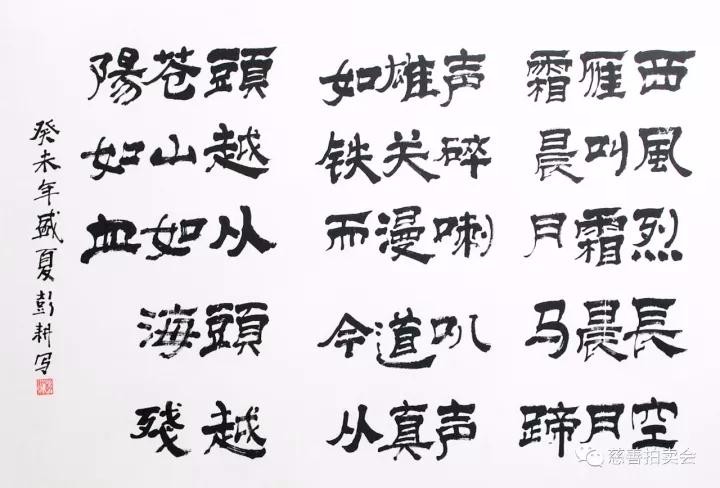 西風烈長空
雁叫霜晨月
霜晨月马蹄
声碎喇叭声
雄关漫道真
如铁而今从
頭越从頭越
苍山如海残
陽如血
癸未年盛夏彭耕写
慈善拍卖会